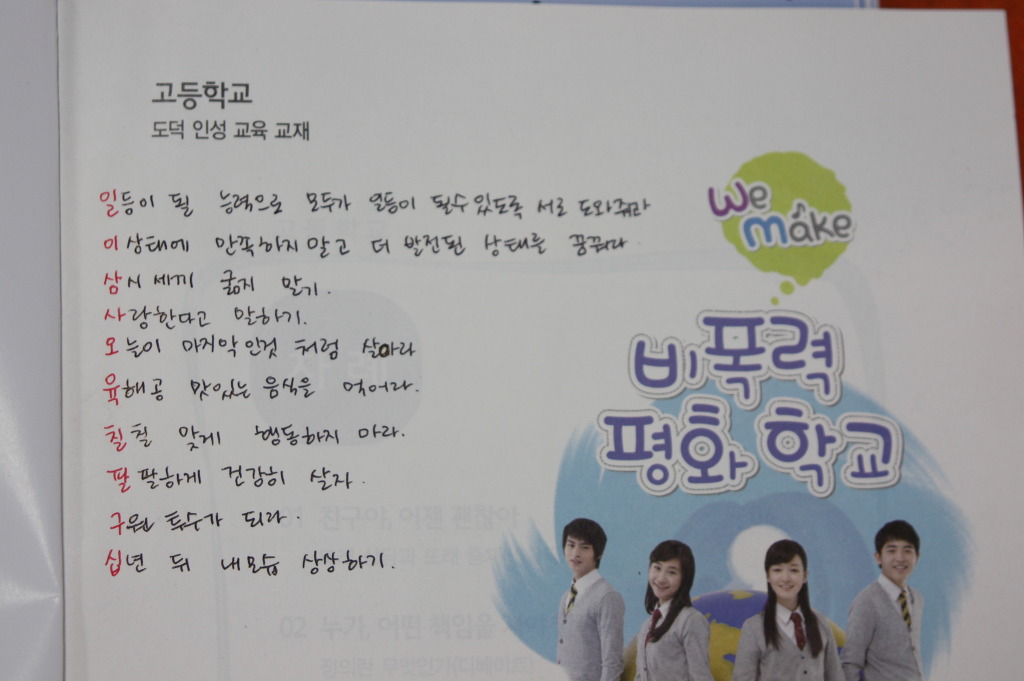 고등학교
도덕 인성 교육 교재
We
make
일등이 될 능력으로 모두가 일등이 될수있도록 서로 도와줘라
이 상태에 만족하지말고 더 발전된 상태를 꿈꿔라
삼시세끼 굶지 말기.
사랑한다고 말하기.
오늘이 마지막인것 처럼 살아라
육해공 맛있는 음식을 먹어라.
칠칠 맞게 행동하지 마라.
팔팔하게 건강히 살자.
구원 투수가 되라
십년 뒤 내모습 상상하기.
비폭력
평화 학교
01 친구야, 이젠 괜찮아
02 누가, 어떤 책임을
정의란 무엇인가(디베이트)